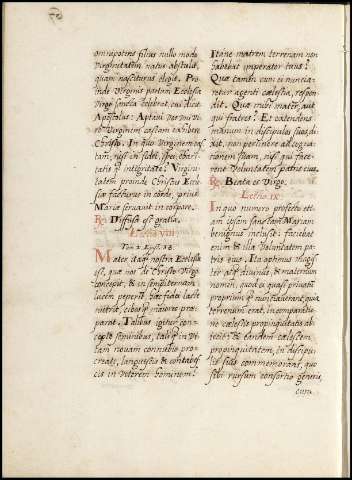 omnipotens filius nullo modo
virginitatem natus abstulit,
quam nasciturus elegit. Pro
inde Virginis partum Ecclesia
Virgo sancta celebrat, cui dicit
Apostolus: Aptavi vos uni vi
ro Virginem castam exhibere
Christo. In quo Virginem cas
tam, nisi in fidei, spei, chari-
tatis integritate? Virgini
tatem proinde Christus Eccle
siæ facturus in corde, prius
Mariæ servavit in corpore.
R. Diffusa est gratia.
Lectio viii
Mater itaq; nostra Ecclesia
est, quæ nos de Christo Virgo
concepit, & in sempiternam
lucem peperit. hæc fidei lacte
nutrit, cibosq; maiores præ-
parat. Talibus igitur con-
ceptis hominibus, talisq; in vi
tam novam connubio pro-
creatis, languescis & contabes
cis in veterem hominem?
Itane matrem terrenam non
habebat imperator tuus?
Quæ tamen cum ei nuncia-
retur agenti cælestia, respon
dit. Quæ mihi mater, aut
qui fratres? Et extendens
manum in discipulos suos di
xit, non pertinere ad cogna-
tionem suam, nisi qui face-
rent voluntatem patris eius.
R. Beata es Virgo.
Lectio ix
In quo numero profecto eti-
am ipsam sanctam Mariam
benignus inclusit: faciebat
enim & illa voluntatem pa-
tris eius. Ita optimus magis-
ter atq; divinus, & maternum
nomen, quod ei quasi privatum
proprium q; nunciaverant, quia
terrenum erat, in comparatio
ne cælestis propinquitatis ab
iecit: & eandem cælestem
propinquitatem in discipu-
lis suis commemorans, quo
sibi rursum consortio generis,
cum